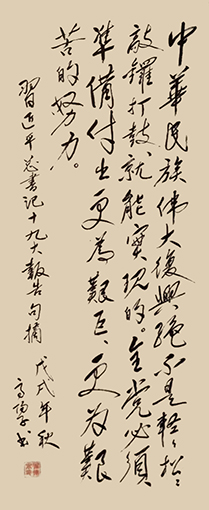 中華民族伟大復興絕不是輕々松々、
敲鑼打鼓就能實现的。全党必須
準備付出更為艱巨、更为艱
苦的努力。
習近平总書记十九大報告句摘
戊戌年秋